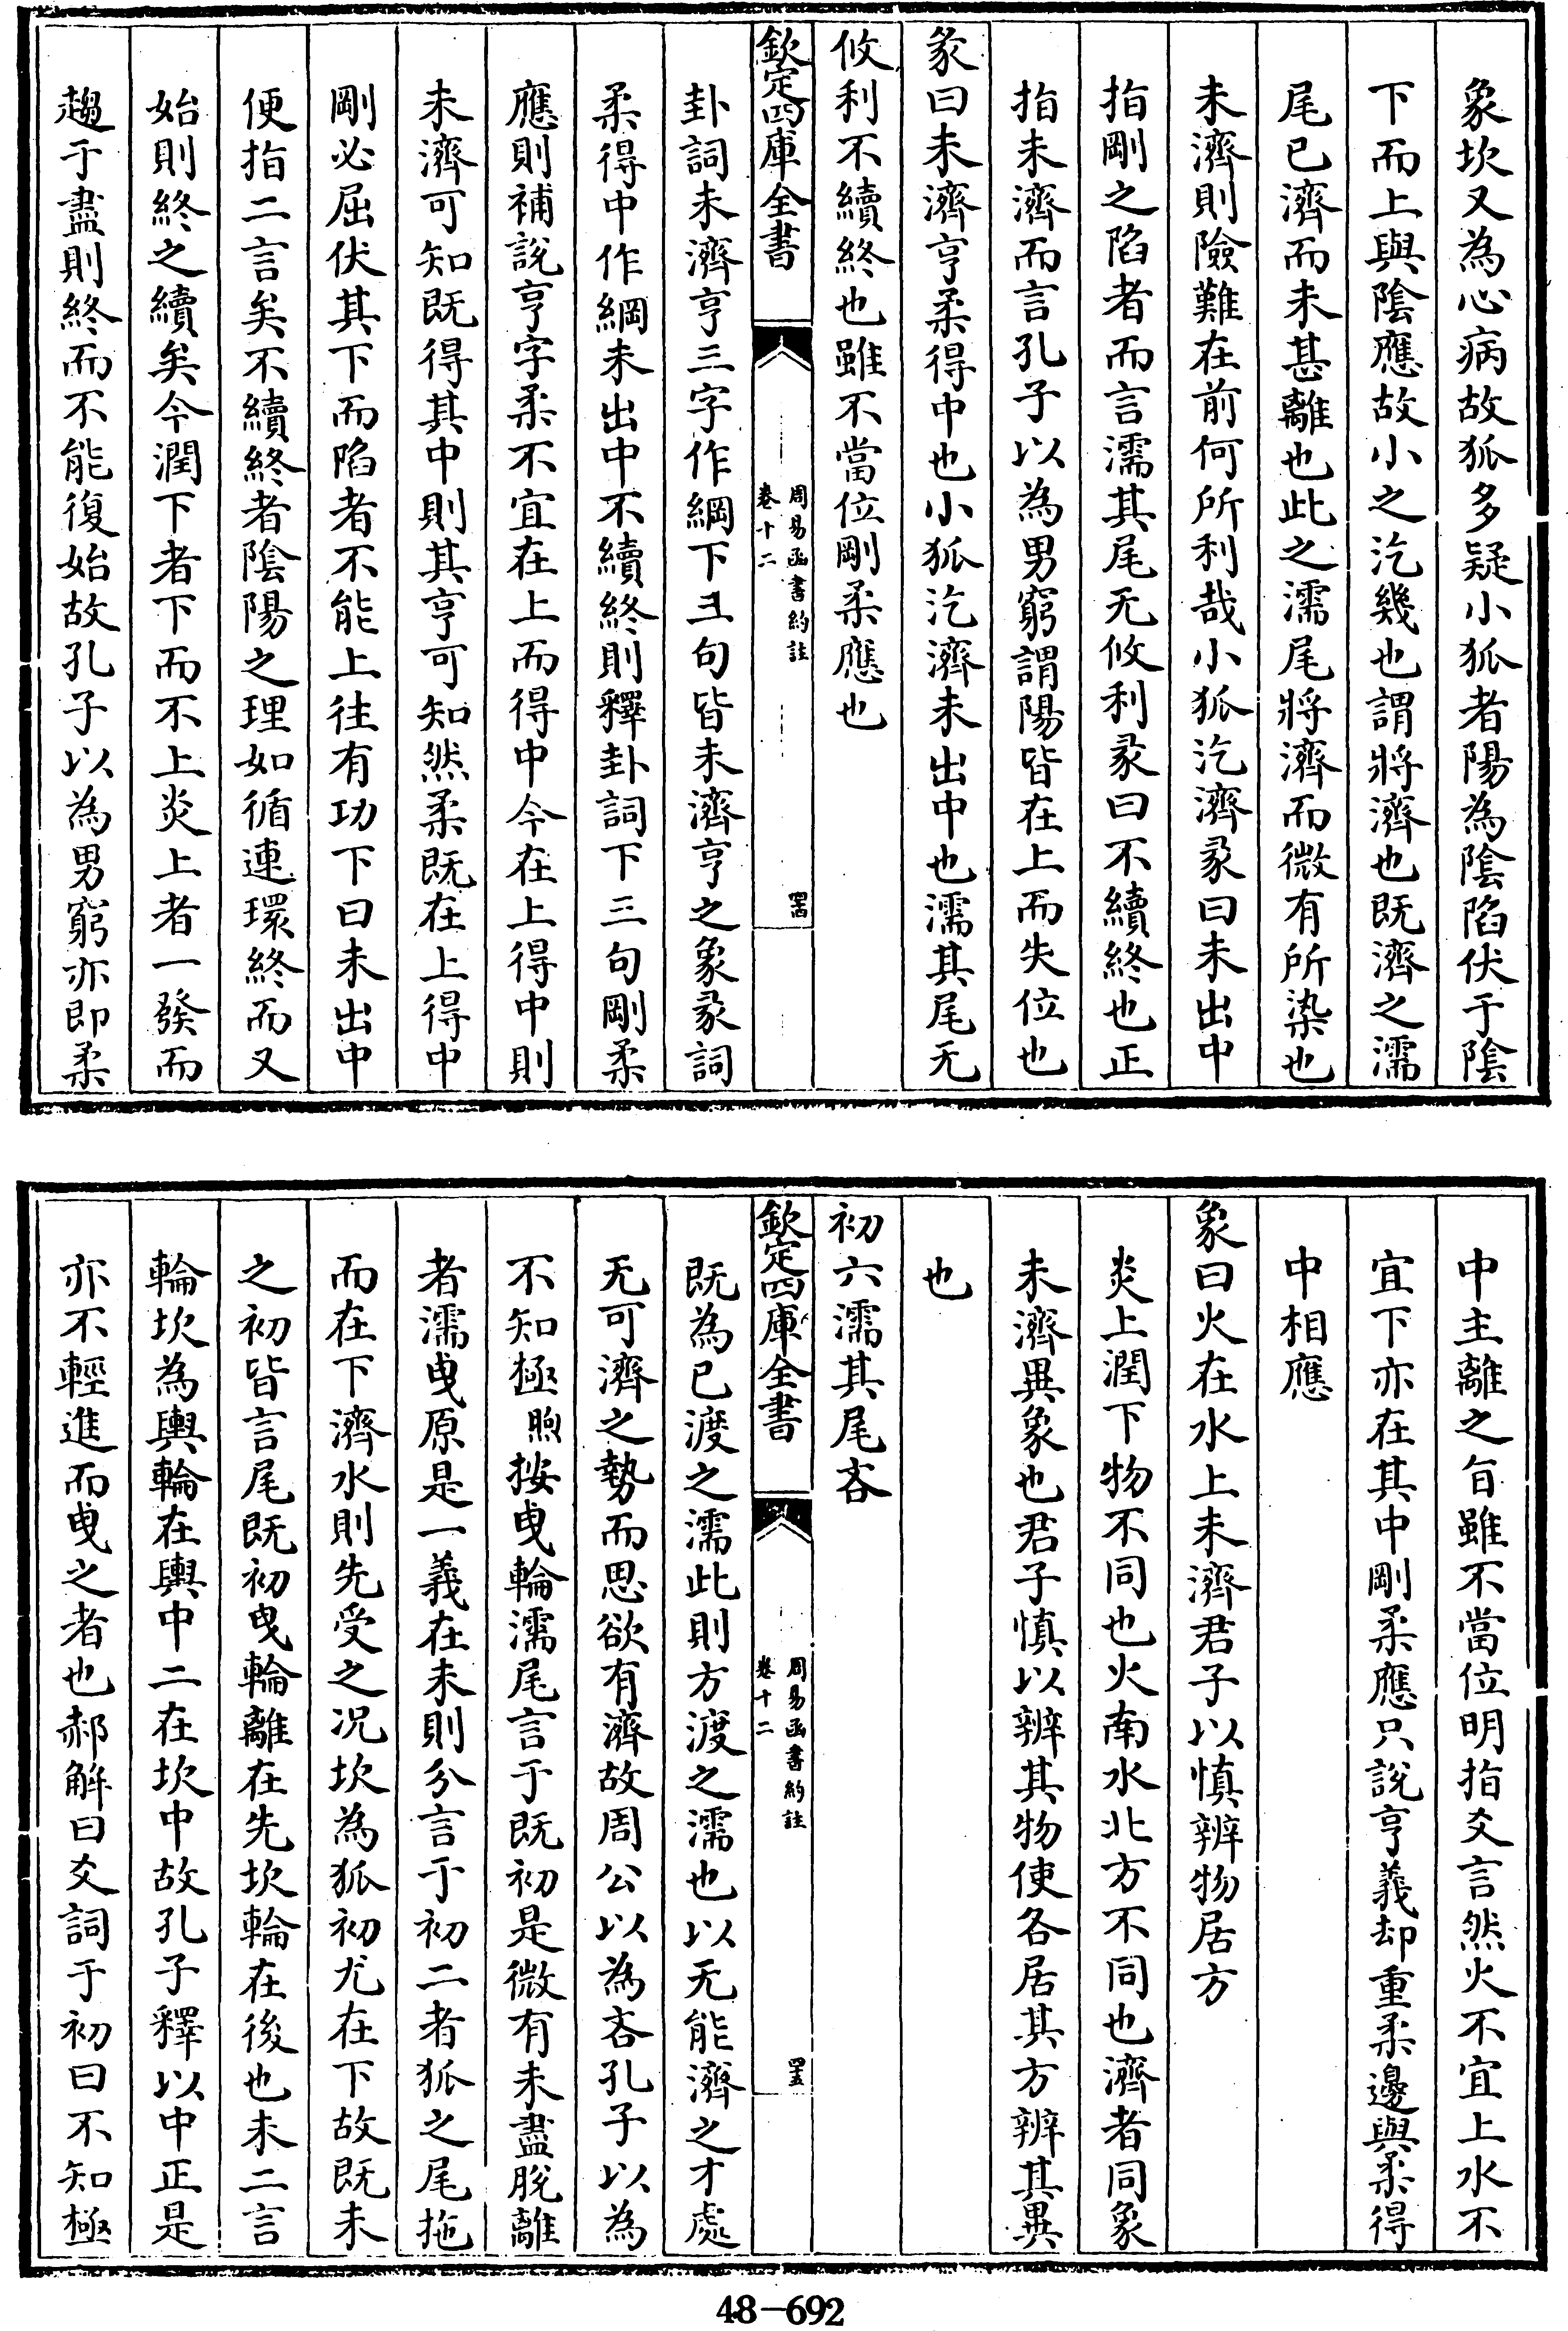 象坎又為心病故狐多疑小狐者陽為陰陷伏于陰
下而上與陰應故小之汔幾也謂將濟也既濟之濡
尾已濟而未甚離也此之濡尾將濟而微有所染也
未濟則險難在前何所利哉小狐汔濟彖曰未出中
指剛之陷者而言濡其尾无攸利彖曰不續終也正
指未濟而言孔子以為男窮謂陽皆在上而失位也
彖曰未濟亨柔得中也小狐汔濟未出中也濡其尾无
攸利不續終也雖不當位剛柔應也
欽定四庫全書
周易函書約註
卷十二
四十四
卦詞未濟亨三字作綱下五句皆未濟亨之象彖詞
柔得中作綱未出中不續終則釋卦詞下三句剛柔
應則補說亨字柔不宜在上而得中今在上得中則
未濟可知既得其中則其亨可知然柔既在上得中
剛必屈伏其下而陷者不能上往有功下曰未出中
便指二言矣不續終者陰陽之理如循連環終而又
始則終之續矣今潤下者下而不上炎上者一發而
趨于盡則終而不能復始故孔子以為男窮亦即柔
中主離之旨雖不當位明指爻言然火不宜上水不
宜下亦在其中剛柔應只說亨義却重柔邊與柔得
中相應
象曰火在水上未濟君子以慎辨物居方
炎上潤下物不同也火南水北方不同也濟者同象
未濟異象也君子慎以辨其物使各居其方辨其異
也
初六濡其尾吝
欽定四庫全書
周易函書約註
卷十二
四十五
既為已渡之濡此則方渡之濡也以无能濟之才處
无可濟之勢而思欲有濟故周公以為吝孔子以為
不知極煦按曳輪濡尾言于既初是微有未盡脫離
者濡曳原是一義在未則分言于初二者狐之尾拖
而在下濟水則先受之况坎為狐初尤在下故既未
之初皆言尾既初曳輪離在先坎輪在後也未二言
輪坎為輿輪在輿中二在坎中故孔子釋以中正是
亦不輕進而曳之者也郝解曰爻詞于初曰不知極
48-692